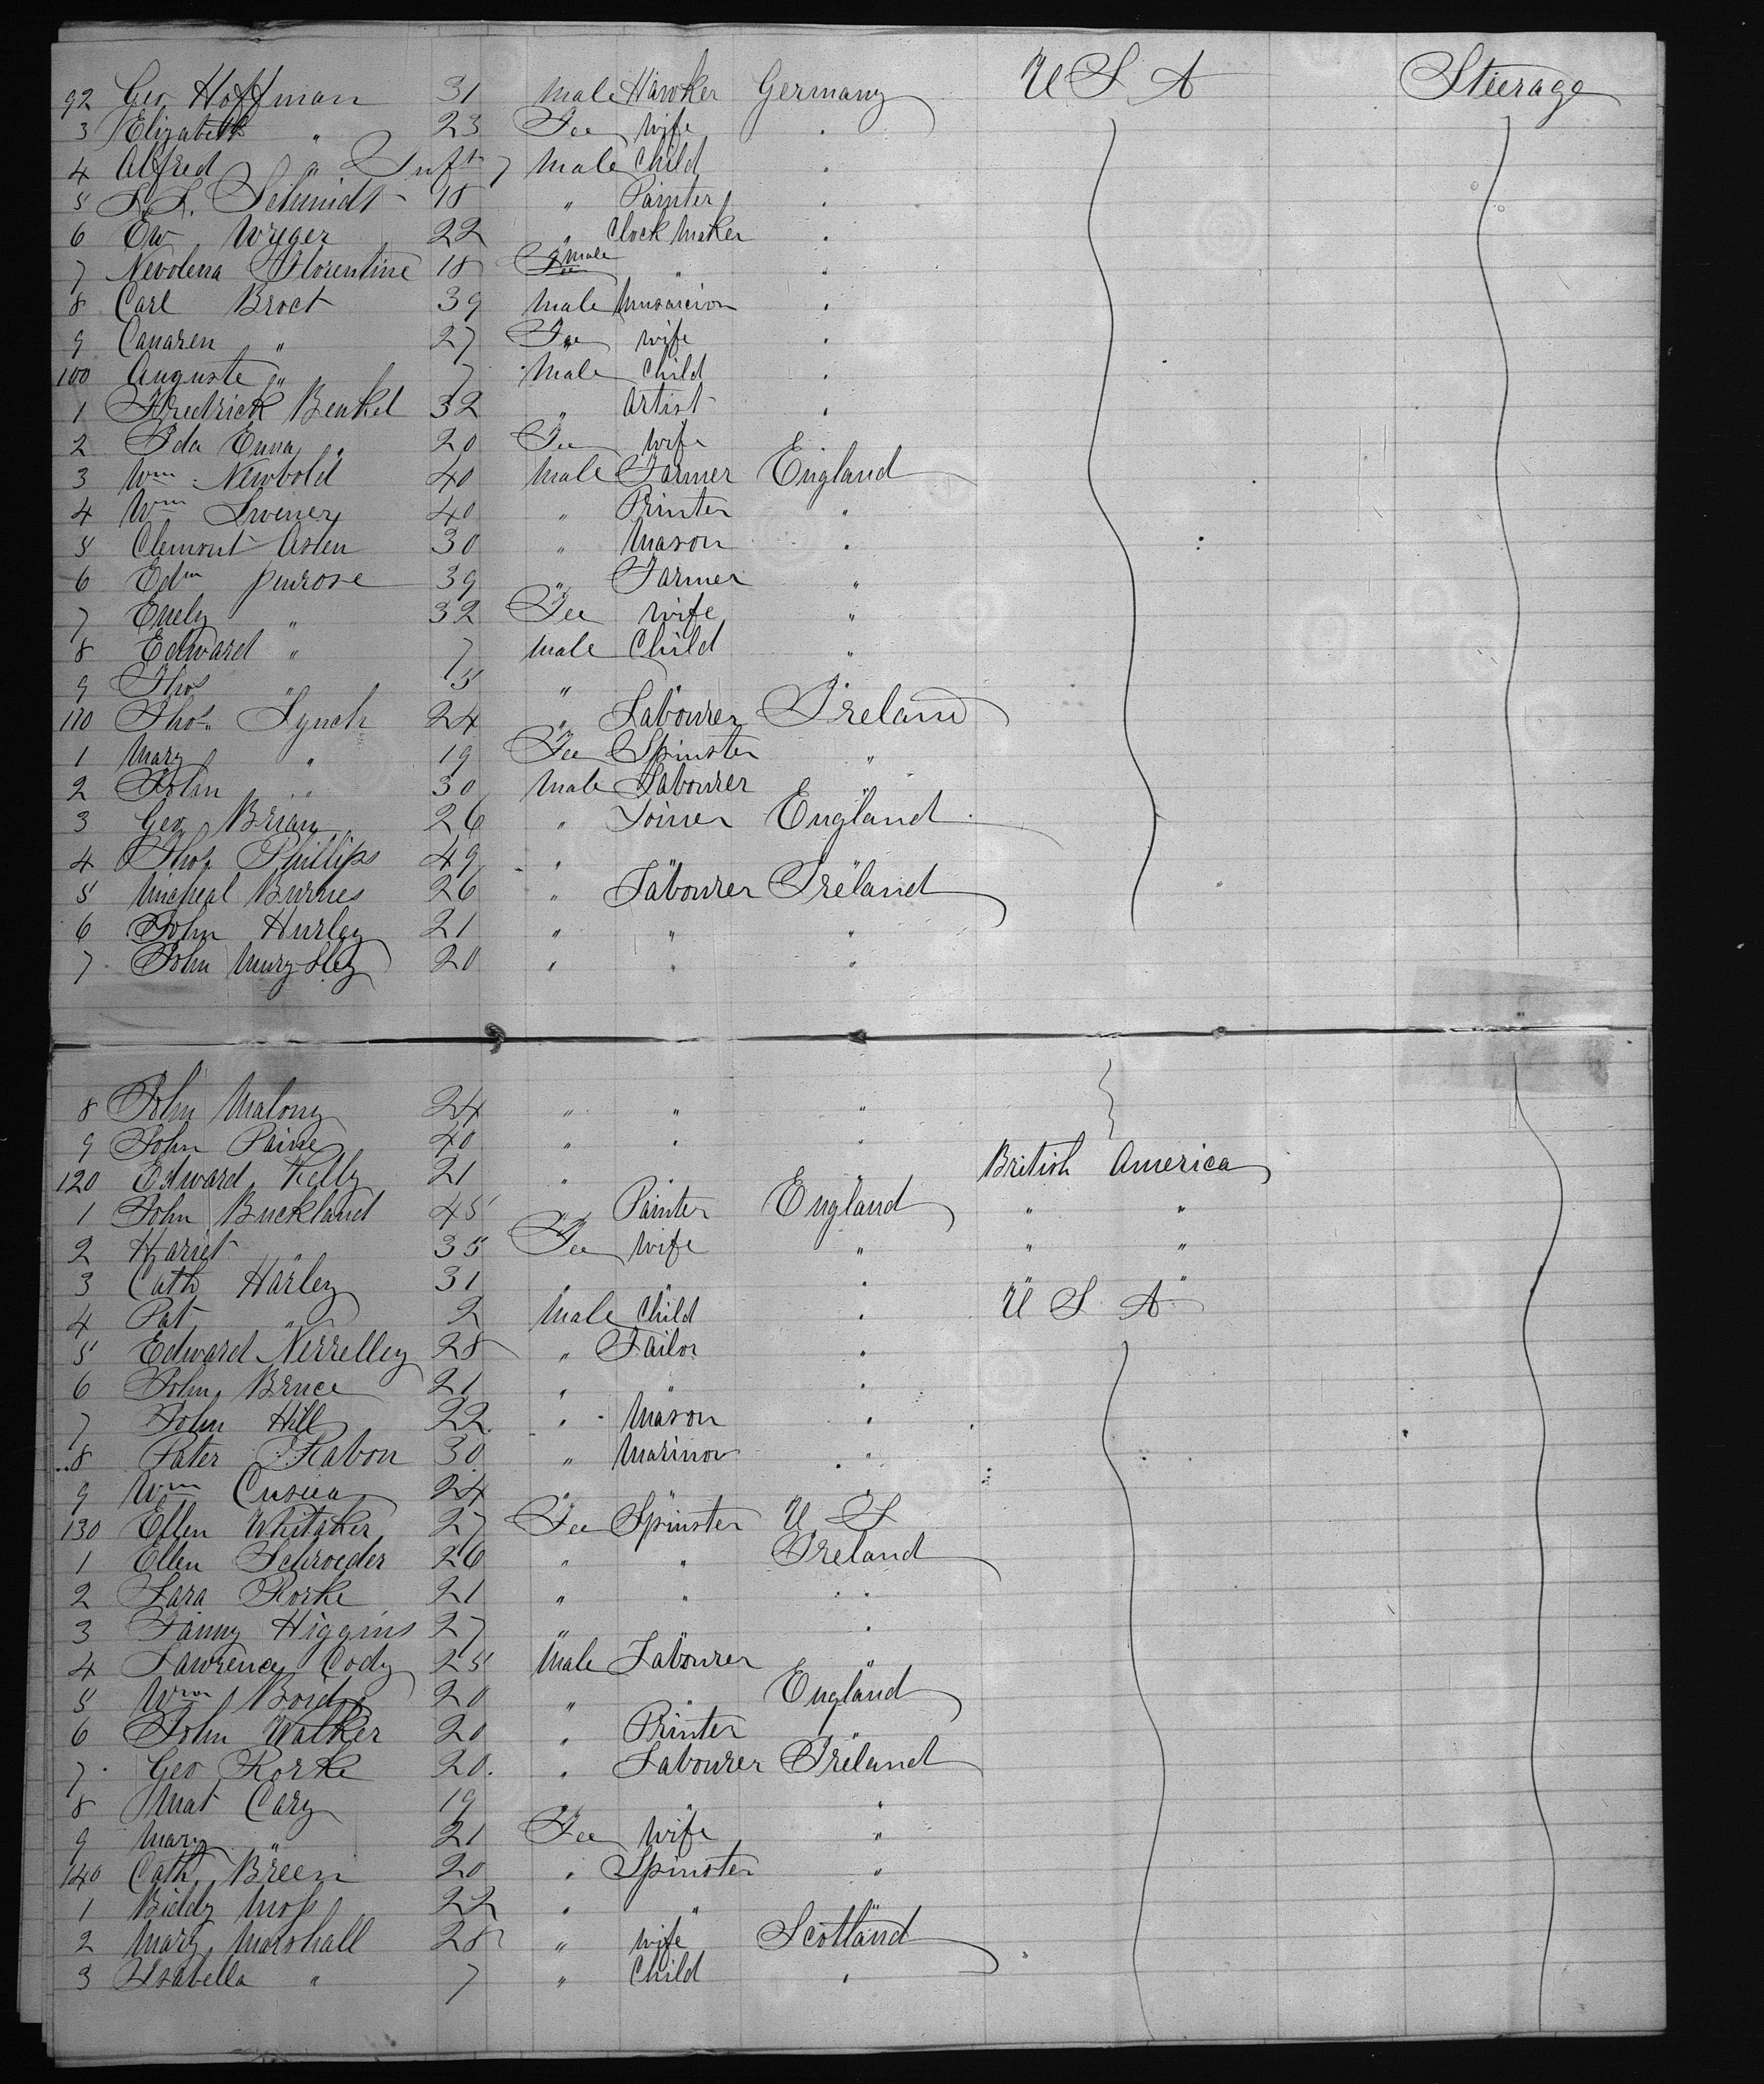 92 Geo Hoffman 31 Male Hawker Germany U S A Steerage
3 Elizabeth " 23 Fee Wife "
4 Alfred " Inft Male Child "
5 Schmidt 18 " Painter "
6 Ew Wreger 22 " Clock Maker "
7 Nevolena Florentine 18 male " "
8 Carl Broct 39 Male "
9 Canaren " 27 Fee Wife "
100 Auguste " 7 Male Child "
1 Fredrick Benkel 32 " Artist "
2 Ida Enna " 20 Fee Wife
3 Wm Newbold 40 Male Farmer England
4 Wm 40 " Printer "
5 Clemont Asten 30 " Mason "
6 Edm Penrose 39 " Farmer "
7 Emely " 32 Fee Wife "
8 Edward " 7 Male Child "
9 Thos " 5 " " "
110 Thos. Lynch 24 " Labourer Ireland
1 Mary " 19 Fee Spinster "
2 John " 30 Male Labourer "
3 Geo Brian 26 " Joiner England
4 Thos Phillips 49 " " "
5 Micheal Burnes 26 " Labourer Ireland
6 John Hurley 21 " " "
7 John 20 " " "
8 John Malony 24 " " "
9 John Paine 40 " " "
120 Edward Kelly 21 " " " British America
1 John Buckland 45 " Painter England " "
2 Hariet " 35 Fee Wife " " "
3 Cath Harley 31 " " " " "
4 Pat " 2 Male Child " U S A
5 Edward Nerrelley 28 " Tailor "
6 John Bruce 21 " " "
7 John Hill 22 " Mason "
8 Pater Rabon 30 " Marinor "
9 Wm 24 " " "
130 Ellen Whitaker 27 Fee Spinster U S
1 Ellen Schroeder 26 " " Ireland
2 Sara Rorke 21 " " "
3 Fanny Higgins 27 " " "
4 Lawrence Cody 25 Male Labourer "
5 Wm Boidy 20 " " England
6 John Walker 20 " Printer "
7 Geo Rorke 20 " Labourer Ireland
8 Mat Cary 19 " " "
9 Mary " 21 Fee Wife "
140 Cath Breen 20 " Spinster "
1 Biddy Moss 22 " " "
2 Mary Marshall 28 " Wife Scotland
3 Isabella " 7 " Child "